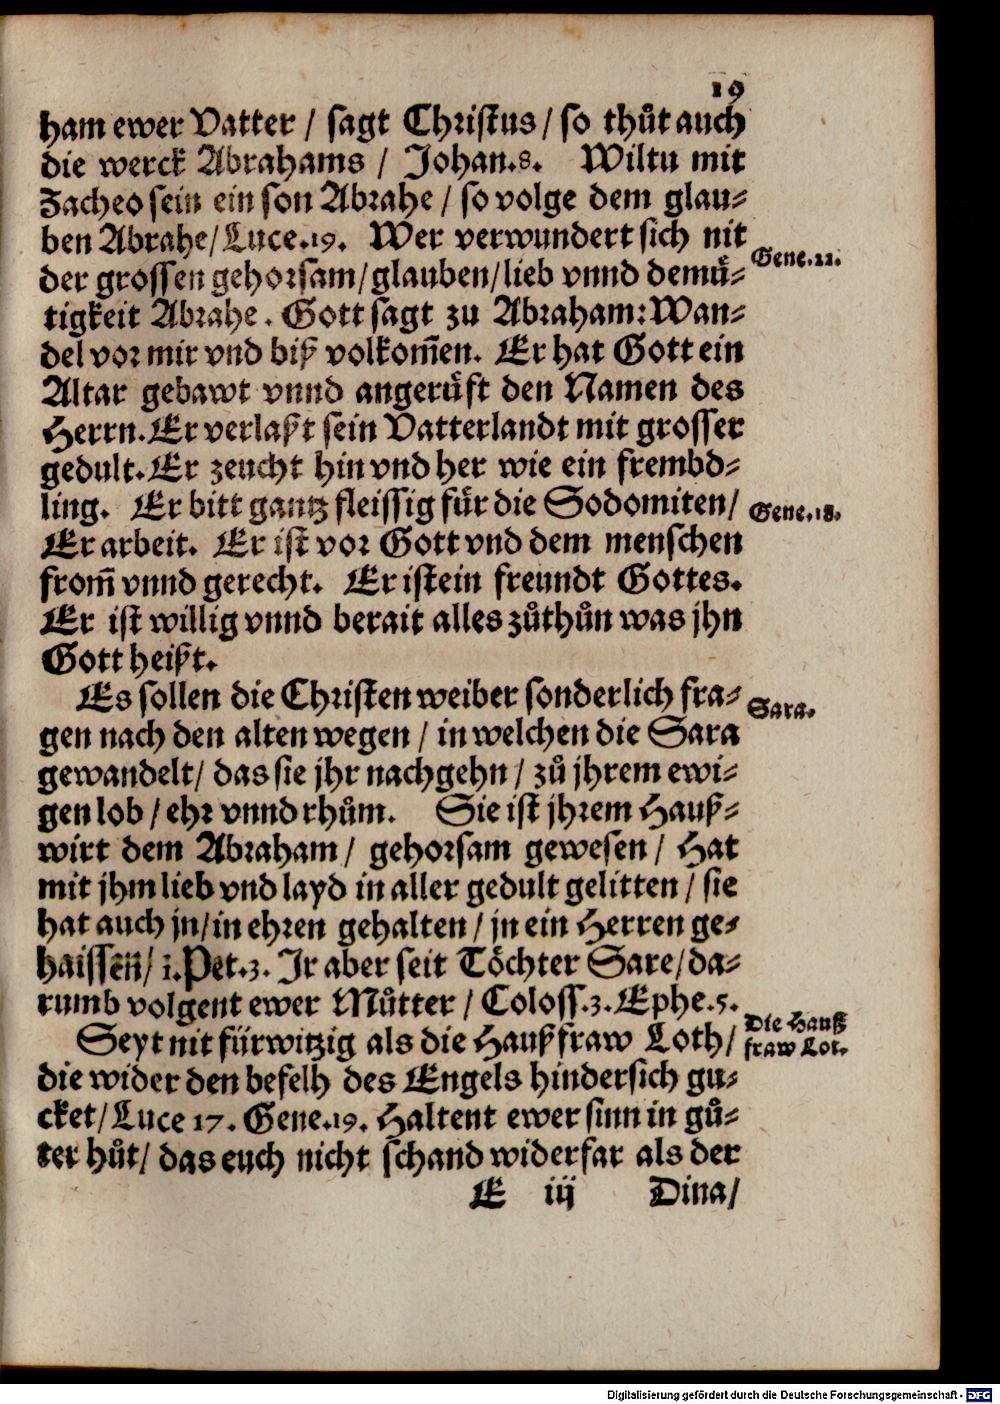 19
ham ewer Vatter / sagt Christus / so thůt auch
die werck Abrahams / Johan.8. Wiltu mit
Zacheo sein ein son Abrahe / so volge dem glau-
ben Abrahe / Luce.19. Wer verwundert sich nit
der grossen gehorsam / glauben / lieb vnnd demuͤ-
Gene.12.
tigkeit Abrahe. Gott sagt zu Abraham: Wan-
del vor mir vnd biß volkom̃en. Er hat Gott ein
Altar gebawt vnnd angeruͤfft den Namen des
Herrn. Er verlaßt sein Vatterlandt mit grosser
gedult. Er zeucht hin vnd her wie ein frembd-
ling. Er bitt gantz fleissig fuͤr die Sodomiten /
Gene.18.
Er arbeit. Er ist vor Gott vnd dem menschen
from̃ vnnd gerecht. Er ist ein freundt Gottes.
Er ist willig vnnd berait alles zůthůn was jhn
Gott heißt.
Es sollen die Christen weiber sonderlich fra-
Sara.
gen nach den alten wegen / in welchen die Sara
gewandelt / das sie jhr nachgehn / zů jhrem ewi-
gen lob / ehr vnnd rhům. Sie ist jhrem Hauß-
wirt dem Abraham / gehorsam gewesen / Hat
mit jhm lieb vnd layd in aller gedult gelitten / sie
hat auch jn / in ehren gehalten / jn ein Herren ge-
haissen / 1. Pet.3. Ir aber seit Toͤchter Sare / da-
rumb volgent ewer Muͤtter / Coloss.3. Ephe.5.
Seyt nit fürwitzig als die Haußfraw Loth /
Die Hauß
fraw Lot.
die wider den befelh des Engels hindersich gu-
cket / Luce 17. Gene.19. Haltent ewer sinn in gů-
ter hůt / das euch nicht schand widerfar als der
E iij Dina /
Digitalisierung gefördert durch die Deutsche Forschungsgemeinschaft - DFG